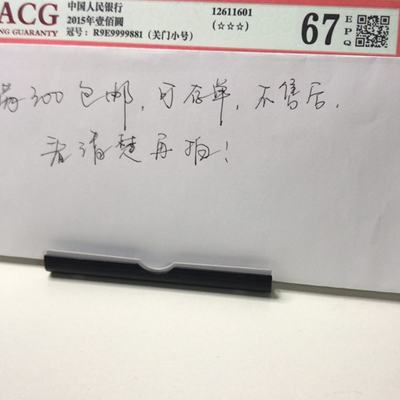 ACG
NG GUARANTY
中国人民银行
2015年壹佰圆
冠号: R9E9999881 (关门小号)
12611601
(☆☆☆)
67
EPQ
满300包邮,可存单,不售后,
看清楚再拍!